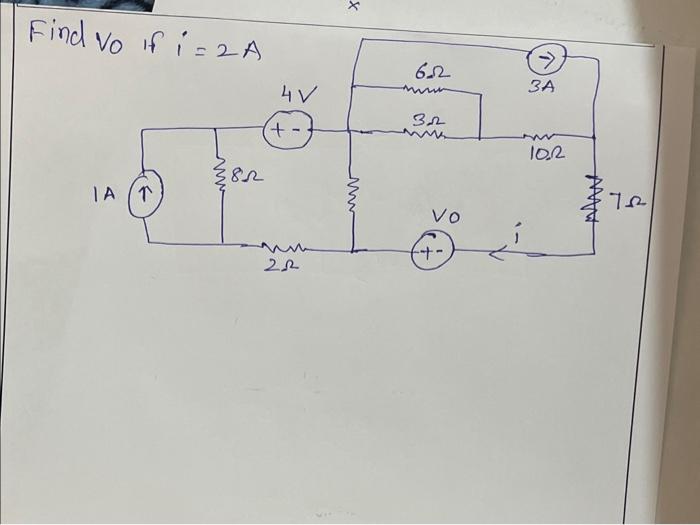 Find Vo if i = 2A
6Ω
3A
4V
+ -
3Ω
10Ω
1A
8Ω
7Ω
Vo
i
+ -
2Ω